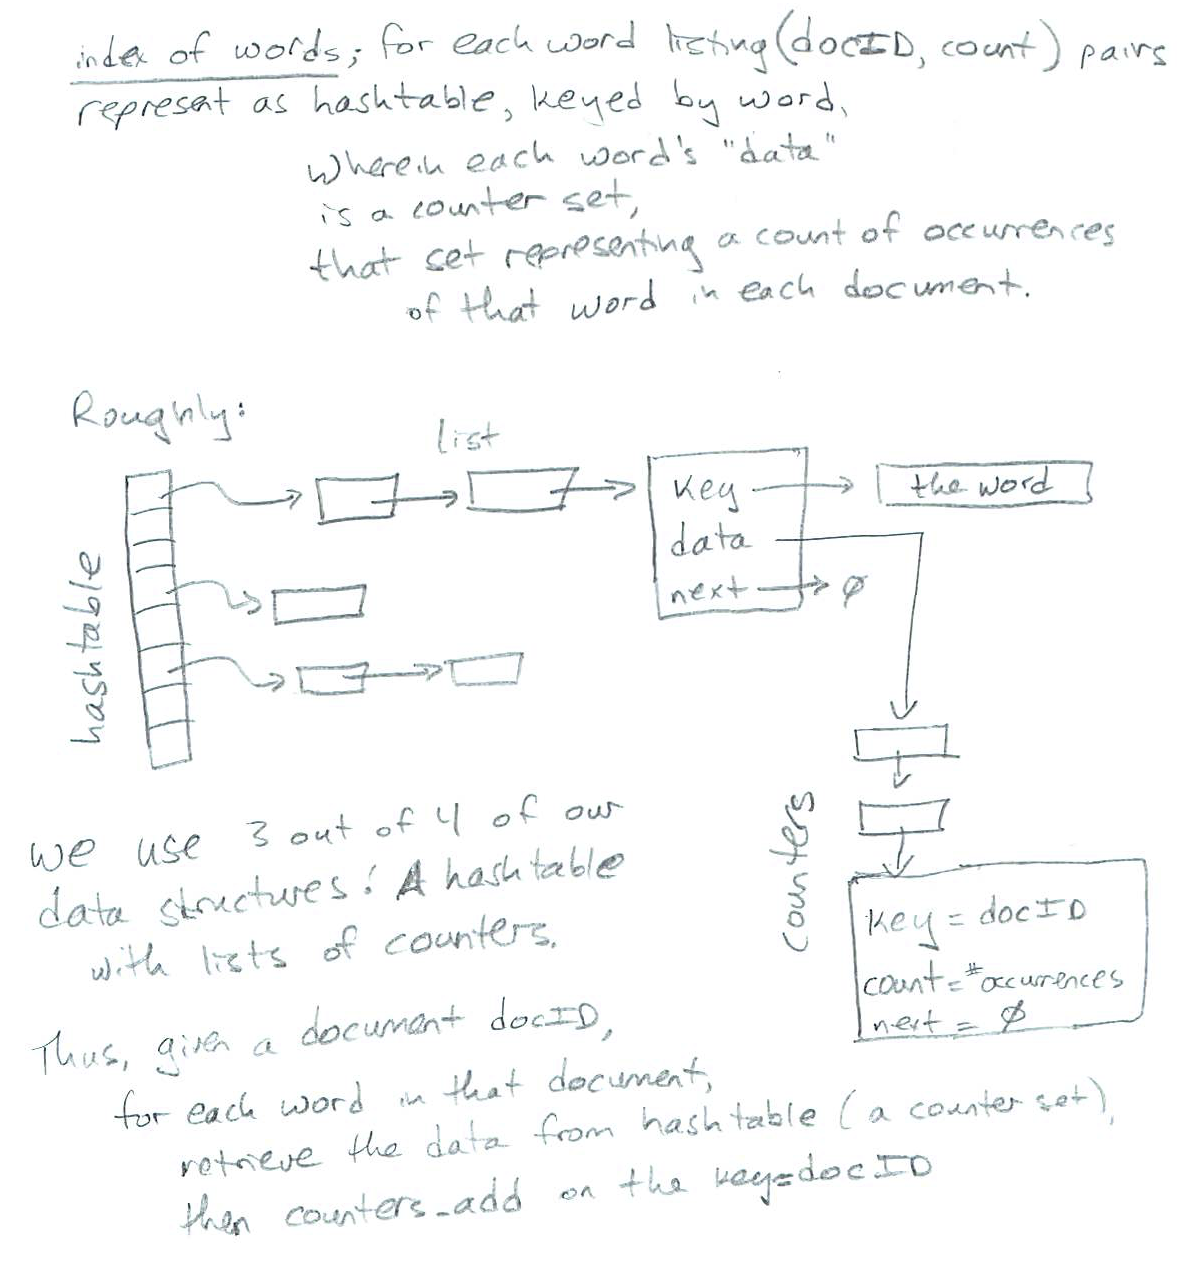 index of words; for each word listing (docID, count) pairs
represent as hashtable, keyed by word,
wherein each word's "data"
is a counter set,
that set representing a count of occurrences
of that word in each document.
Roughly:
list
hashtable
key
the word
data
next → ∅
counters
key = docID
count = # occurrences
next = ∅
we use 3 out of 4 of our
data structures: A hashtable
with lists of counters.
Thus, given a document docID,
for each word in that document,
retrieve the data from hashtable (a counter set),
then counters_add on the key=docID